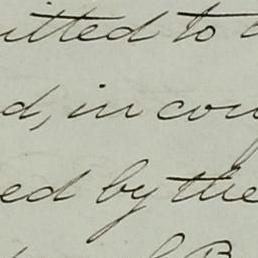 itted to
d, in cou
ed by the